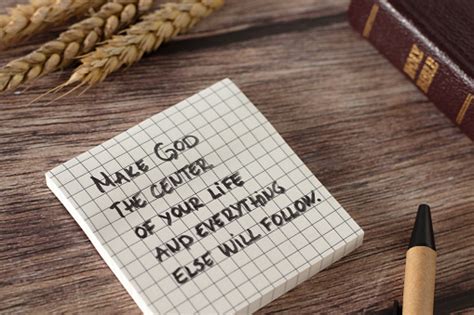 MAKE GOD
THE CENTER
OF YOUR LIFE
AND EVERYTHING
ELSE WILL FOLLOW.
HOLY BIBLE